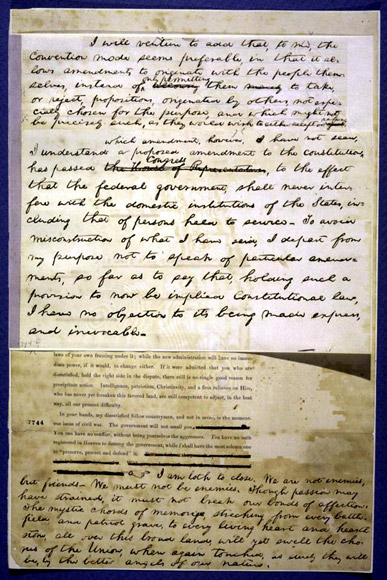 I will venture to add that, to me, the
Convention mode seems preferable, in that it al-
lows amendments to originate with the people them-
only permitting
selves, instead of them to take,
or reject, propositions, originated by others, not espe-
cially chosen for the purpose, and which might not
be precisely such, as they would wish to either accept or refuse
which amendment, however, I have not seen,
I understand a proposed amendment to the constitution
Congress
has passed the House of Representatives, to the effect
that the federal government, shall never inter-
fere with the domestic institutions of the States, in-
cluding that of persons held to service. To avoid
misconstruction of what I have said, I depart from
my purpose not to speak of particular amend-
ments, so far as to say that, holding such a
provision to now be implied Constitutional law,
I have no objection to its being made express,
and irrevocable.
laws of your own framing under it; while the new administration will have no imme-
diate power, if it would, to change either. If it were admitted that you who are
dissatisfied, hold the right side in the dispute, there still is no single good reason for
precipitate action. Intelligence, patriotism, Christianity, and a firm reliance on Him,
who has never yet forsaken this favored land, are still competent to adjust, in the best
way, all our present difficulty.
In your hands, my dissatisfied fellow countrymen, and not in mine, is the momen-
7744 tous issue of civil war. The government will not assail you
You can have no conflict, without being yourselves the aggressors. You have no oath
registered in Heaven to destroy the government, while I shall have the most solemn one
to "preserve, protect and defend" it
I am loth to close. We are not enemies,
but friends. We must not be enemies. Though passion may
have strained, it must not break our bonds of affection.
The mystic chords of memory, streching from every battle-
field, and patriot grave, to every living heart and hearth-
stone, all over this broad land, will yet swell the cho-
rus of the Union, when again touched, as surely they will
be, by the better angels of our nature.